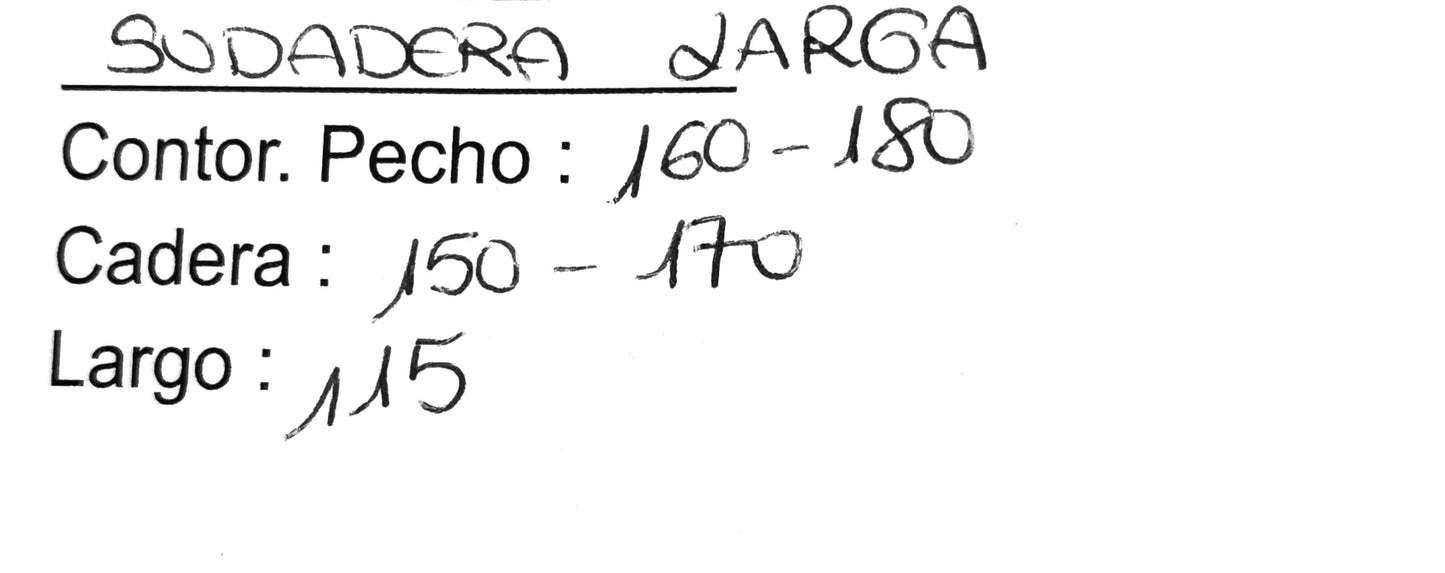 SUDADERA LARGA
Contor. Pecho : 160 - 180
Cadera : 150 - 170
Largo : 115